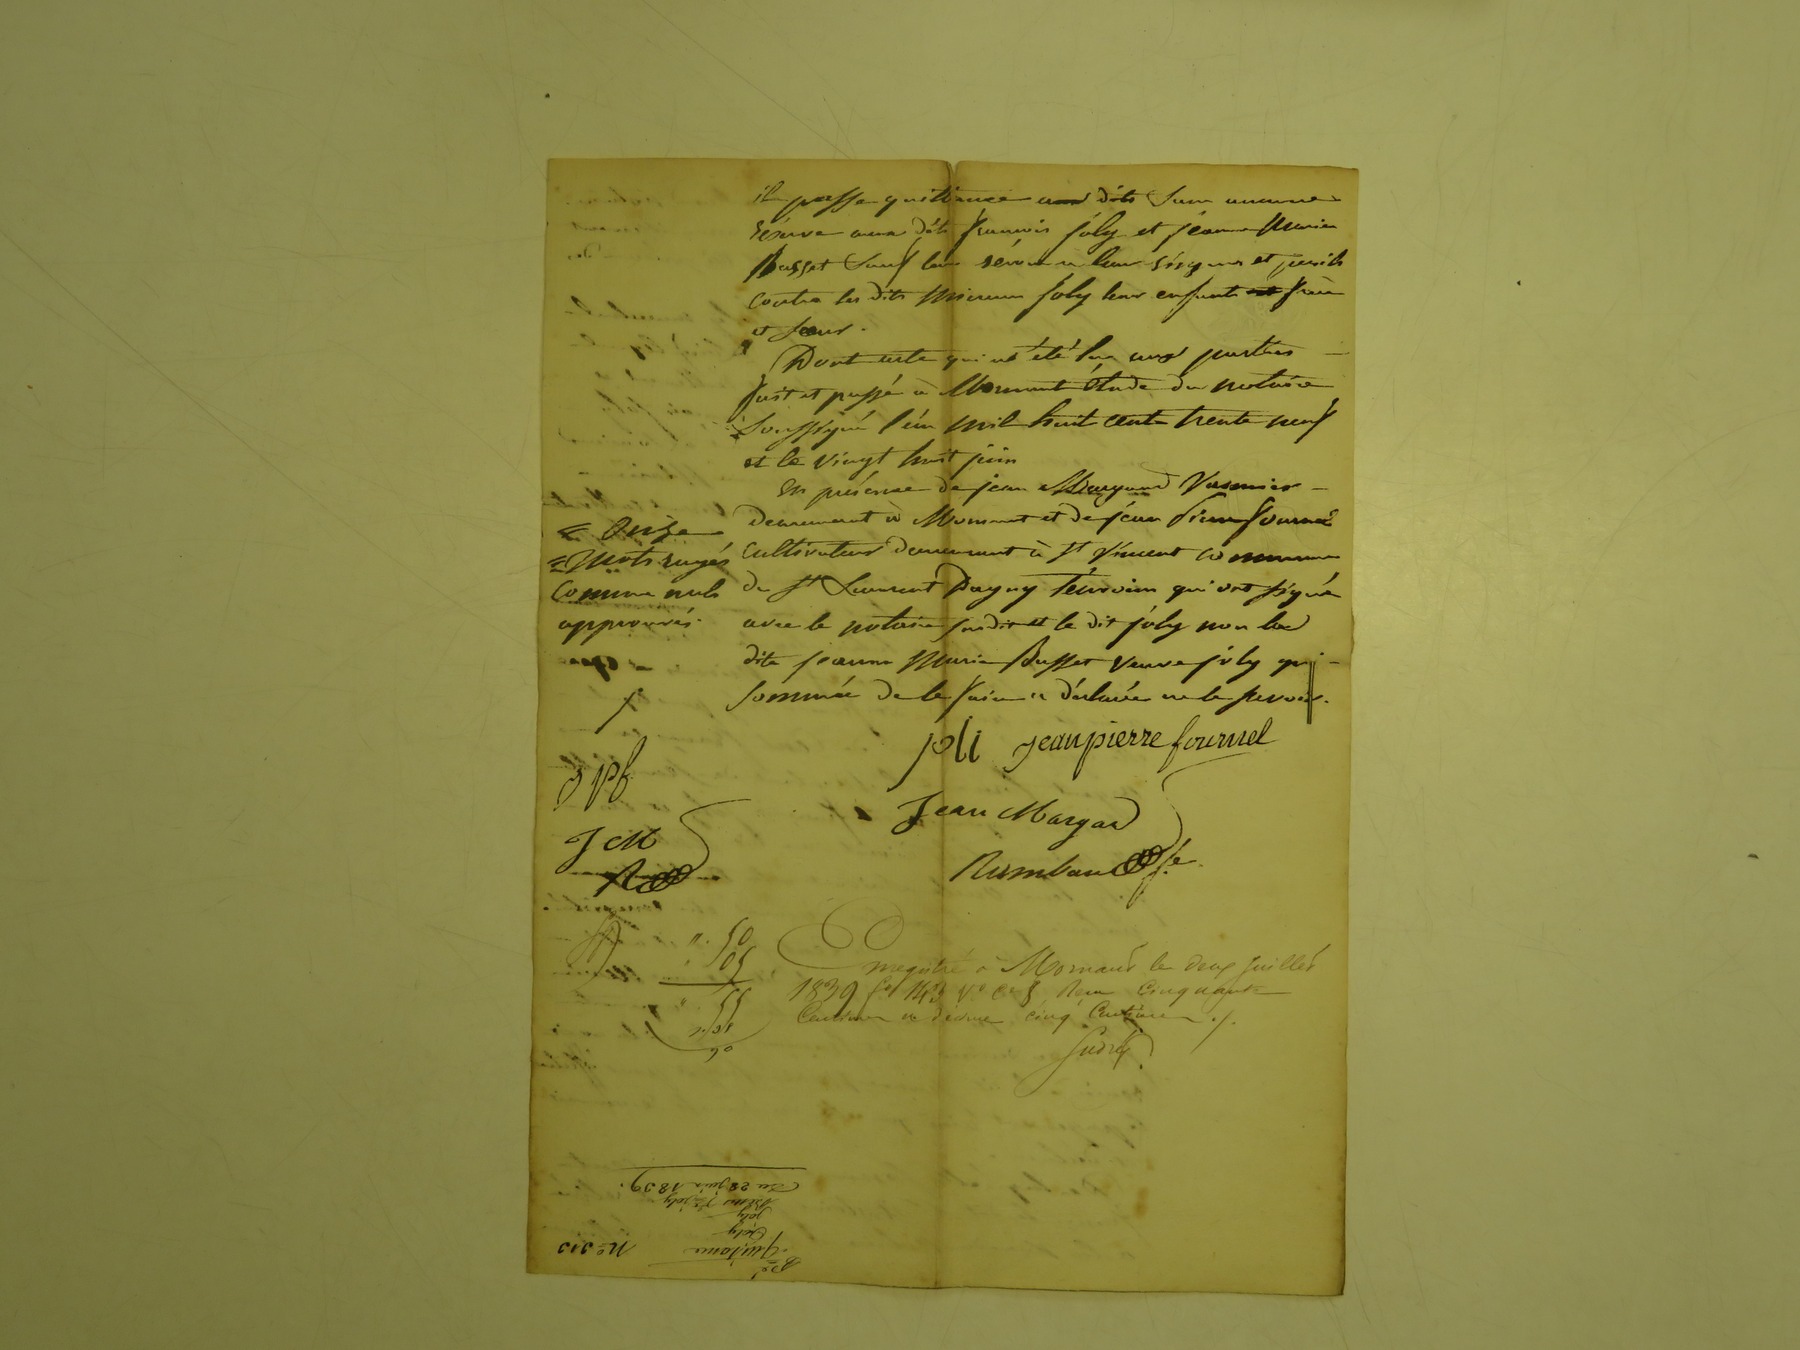 il passe quittance aux dits sans aucune
réserve aux dits françois joly et jeanne Marie
Busset sauf leur recours à leur risques et périls
contre les dits Mineurs joly leur enfants et frère
et sœur.
Dont acte qui a été lu aux parties
fait et passé à Mornant étude du notaire
soussigné l'an mil huit cent trente neuf
et le vingt huit juin
En présence de jean Margand
demeurant à Mornant et de jean pierre fournel
cultivateur demeurant à St Vincent commune
de St Laurent Dagny témoins qui ont signé
avec le notaire susdit et le dit joly non la
dite jeanne Marie Busset veuve joly qui
sommée de le faire a déclaré ne le savoir.
= Onze
= Mots rayés
comme nuls
approuvés.
joli jeanpierre fournel
J P f
Jean Margan
J M
50
05
55
Enregistré à Mornant le deux juillet
1839 fo 143 Vo Reçu Cinquante
Centimes et décime cinq Centimes ./.
Quittance
joly
joly
Du 28 juin 1839.
No 313